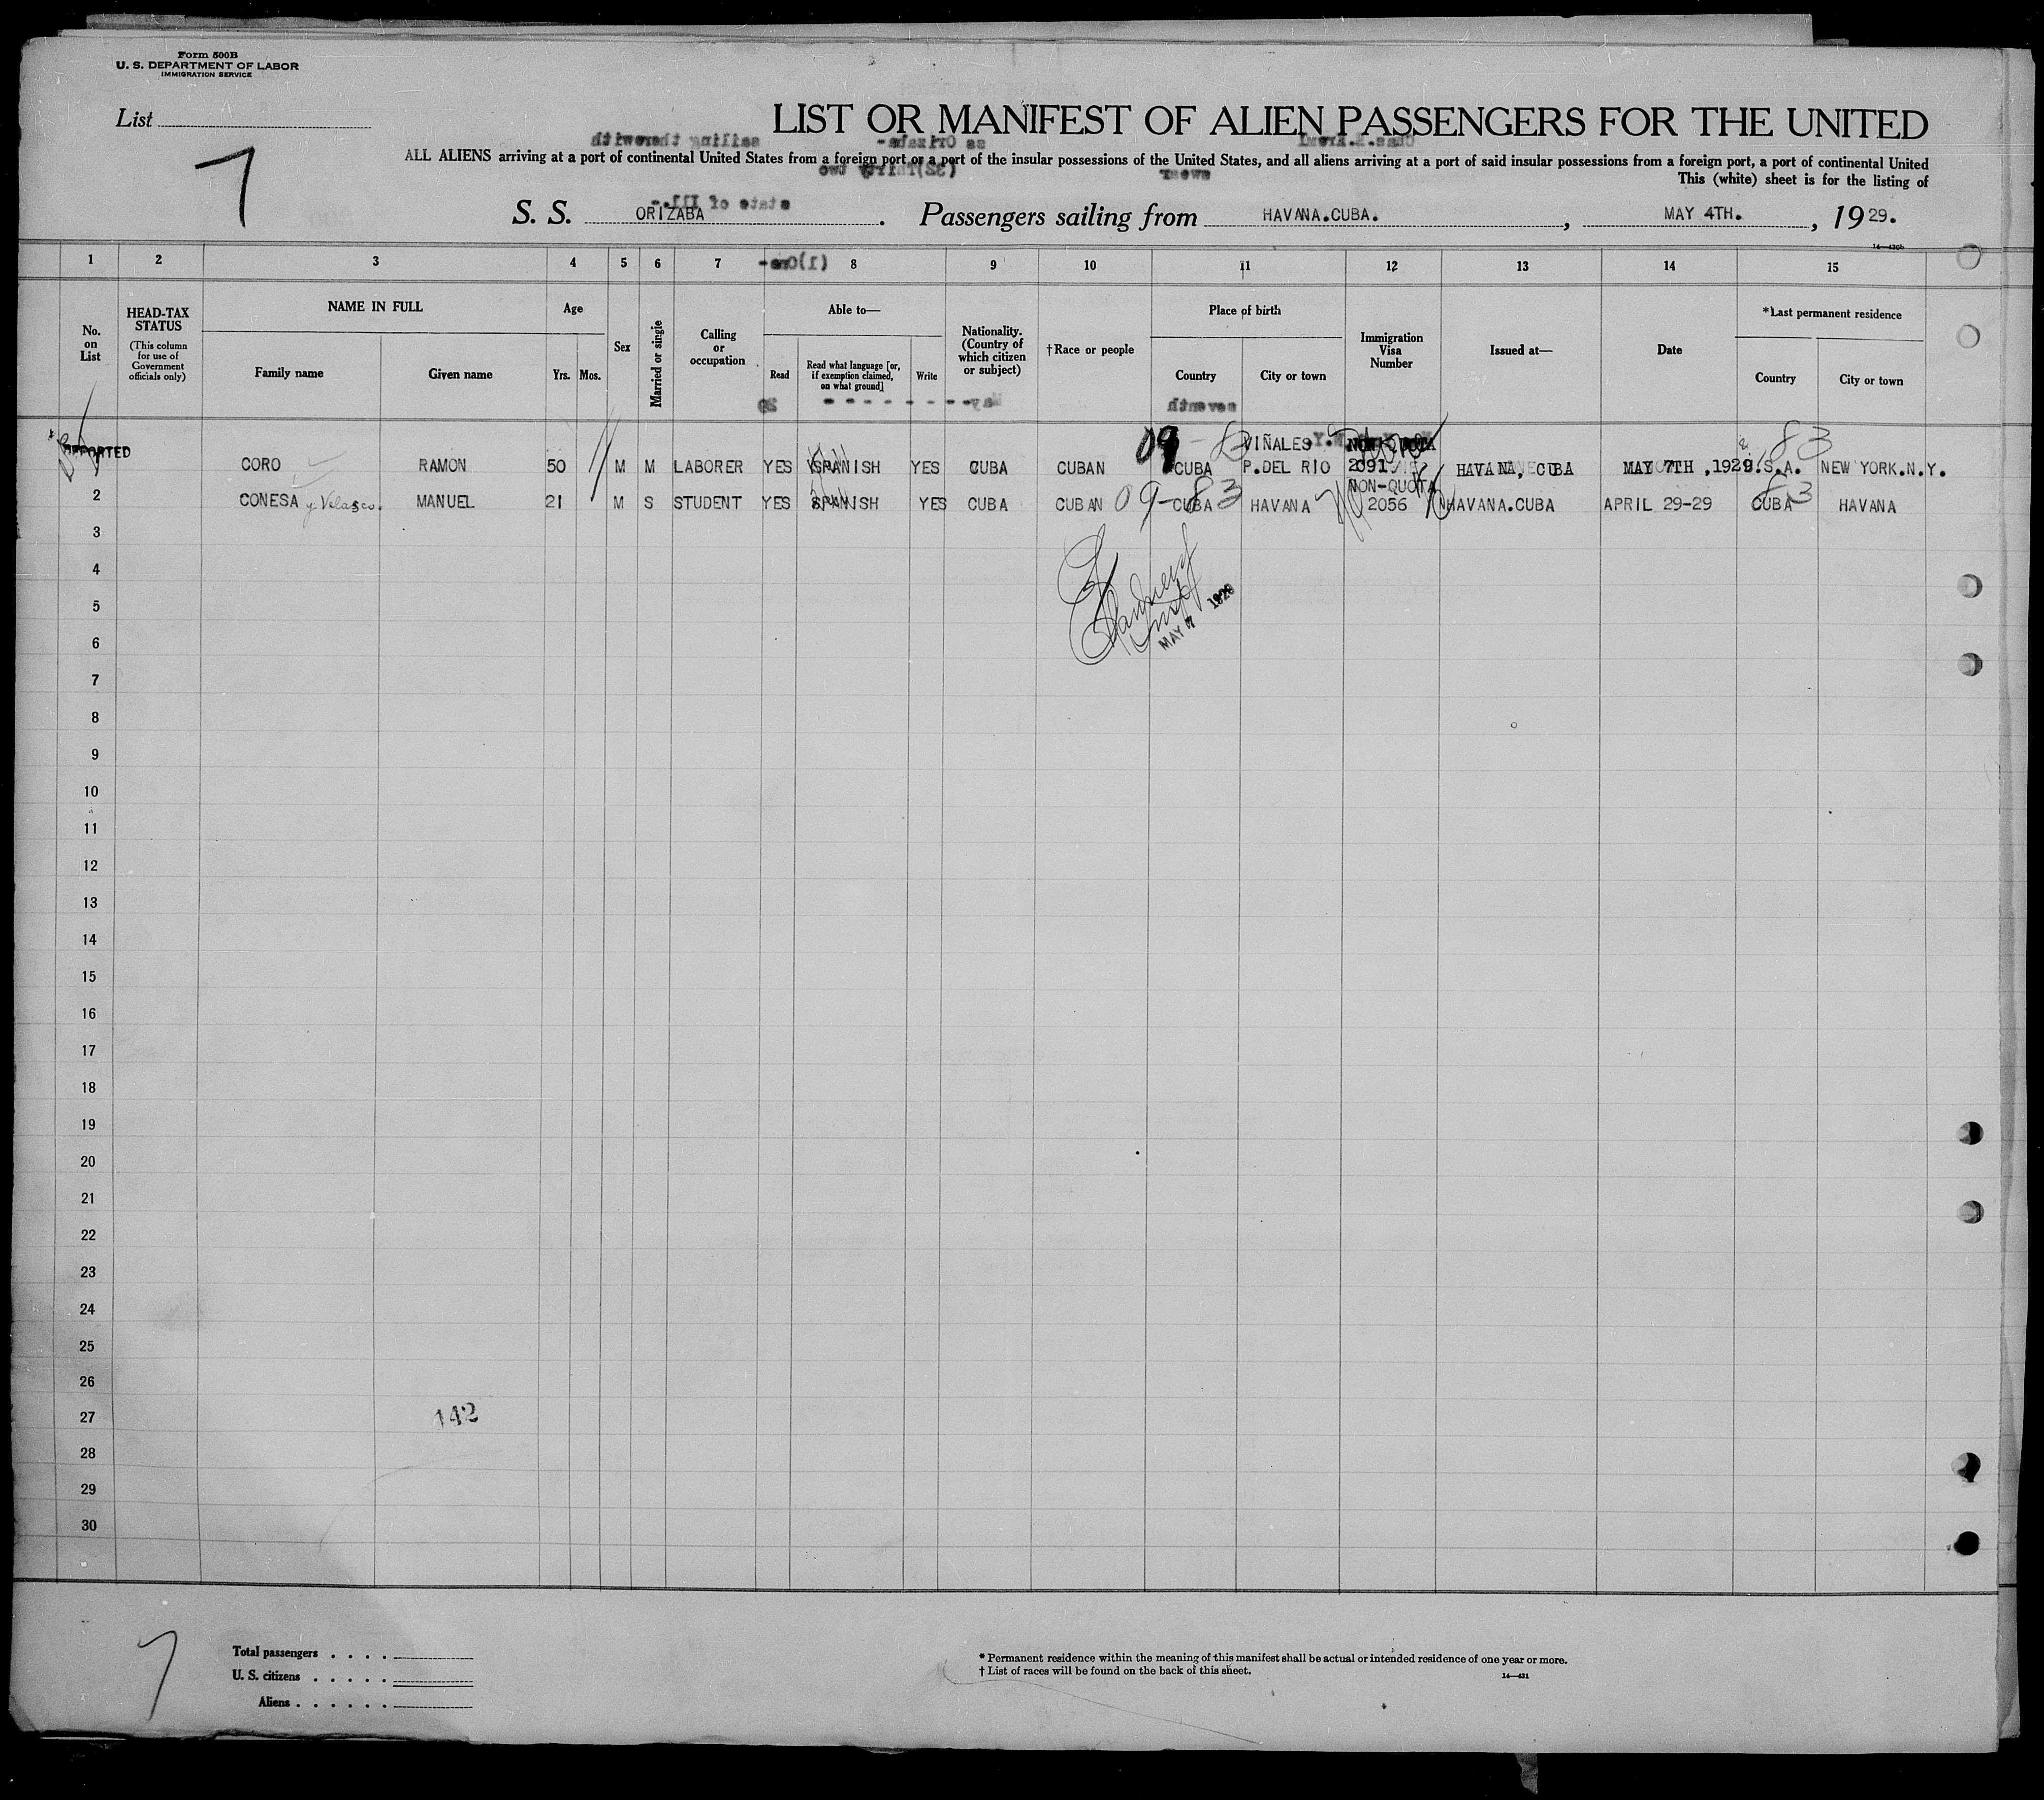 Form 500B
U. S. DEPARTMENT OF LABOR
IMMIGRATION SERVICE
List
7
LIST OR MANIFEST OF ALIEN PASSENGERS FOR THE UNITED
ALL ALIENS arriving at a port of continental United States from a foreign port or a port of the insular possessions of the United States, and all aliens arriving at a port of said insular possessions from a foreign port, a port of continental United
This (white) sheet is for the listing of
S. S. ORIZABA. Passengers sailing from HAVANA.CUBA. , MAY 4TH. , 1929.
1 2 3 4 5 6 7 8 9 10 11 12 13 14 15
No. on List
HEAD-TAX STATUS
(This column for use of Government officials only)
NAME IN FULL
Family name
Given name
Age
Yrs. Mos.
Sex
Married or single
Calling or occupation
Able to—
Read
Read what language [or, if exemption claimed, on what ground]
Write
Nationality. (Country of which citizen or subject)
†Race or people
Place of birth
Country
City or town
Immigration Visa Number
Issued at—
Date
*Last permanent residence
Country
City or town
CORO RAMON 50 M M LABORER YES SPANISH YES CUBA CUBAN 09-83 CUBA VIÑALES P.DEL RIO 2091 HAVANA, CUBA MAY 7TH ,1929 U.S.A. 83 NEW YORK.N.Y.
2 CONESA y Velasco. MANUEL 21 M S STUDENT YES SPANISH YES CUBA CUBAN 09-83 CUBA HAVANA NON-QUOTA 2056 HAVANA.CUBA APRIL 29-29 CUBA 83 HAVANA
3
4
5
MAY 7 1929
6
7
8
9
10
11
12
13
14
15
16
17
18
19
20
21
22
23
24
25
26
27
142
28
29
30
7
Total passengers . . . .
U. S. citizens . . . . .
Aliens . . . . . .
* Permanent residence within the meaning of this manifest shall be actual or intended residence of one year or more.
† List of races will be found on the back of this sheet.
14—431